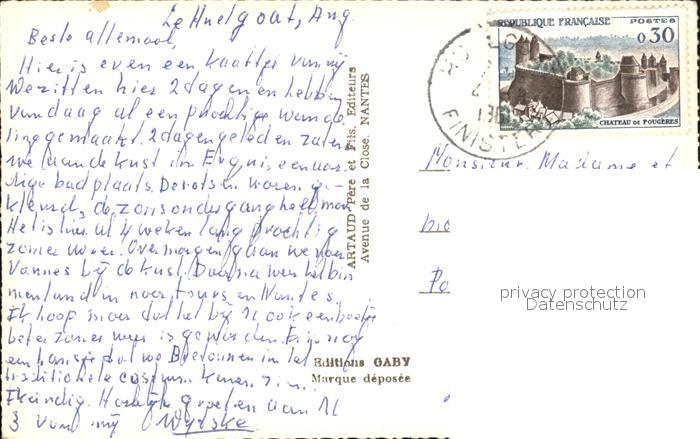 Le Huelgoat, Aug.
Beste allemaal,
Hier is even een kaartje van mij
We zitten hier 2 dagen en hebben
vandaag al een prachtige wande-
ling gemaakt. 2 dagen geleden zaten
we aan de kust in
badplaats. De rotsen waren ge-
kleurd, de zonsondergang heel mooi
Het is hier al 4 weken lang prachtig
zomer weer. Overmorgen gaan we naar
Vannes bij de kust. Daarna weer het bin
nenland in naar Tours en Nantes.
Ik hoop maar dat het bij U ook een beetje
beter zomer weer is geworden. Er is nog
een kansje dat we Bretonnen in het
traditionele costuum kunnen zien.
Hartelijk groeten aan U
3 van mij Wytske
ARTAUD Père et Fils, Editeurs
Avenue de la Close, NANTES
Editions GABY
Marque déposée
REPUBLIQUE FRANÇAISE POSTES
0,30
CHATEAU DE FOUGÈRES
FINISTERE
Monsieur, Madame et
privacy protection
Datenschutz